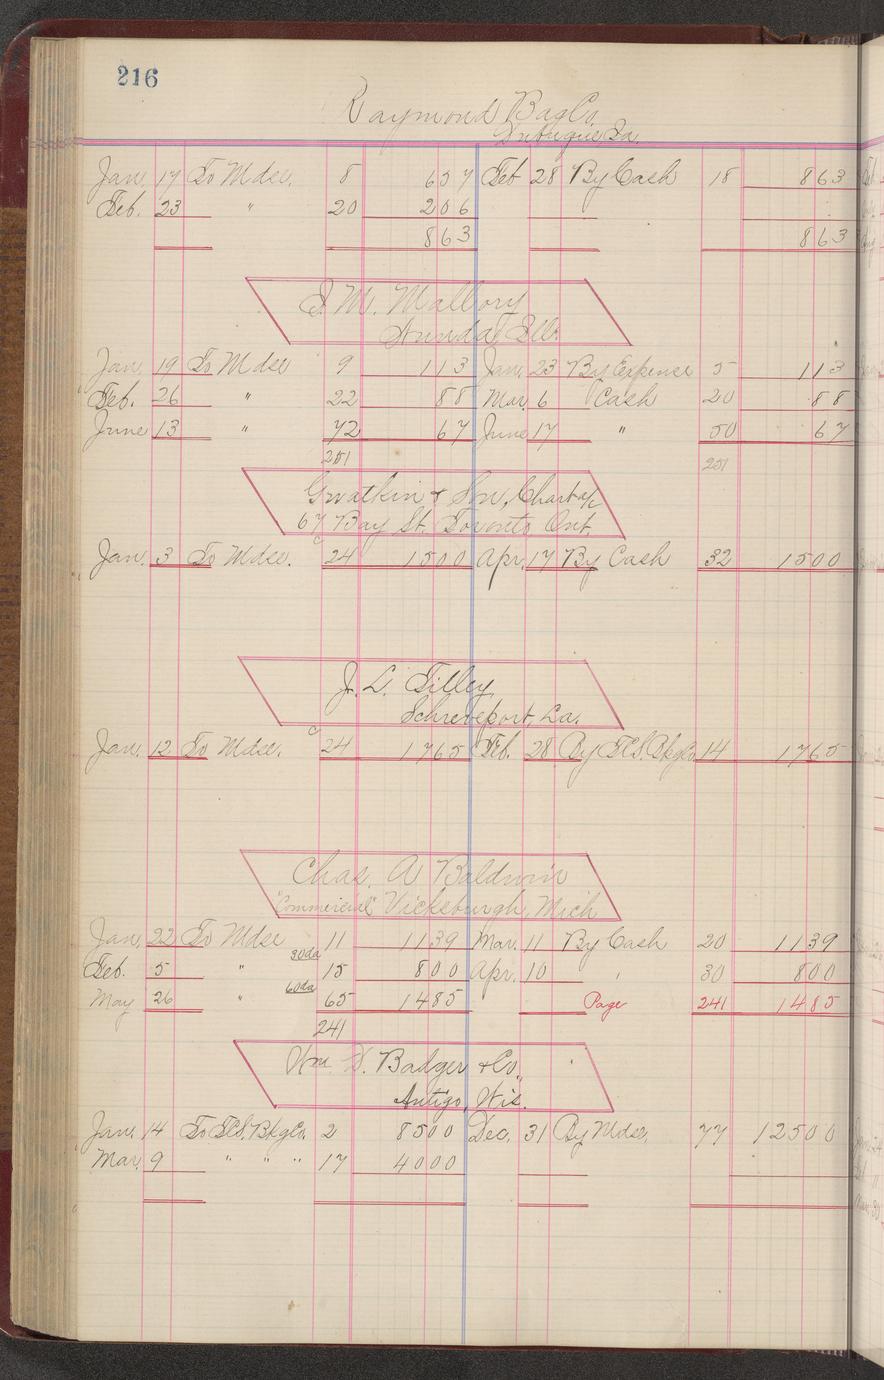 216
Raymond Bag Co.
Dubuque Ia.
Jan. 17 To Mdse. 8 657 Feb 28 By Cash 18 863
Feb. 23 " 20 206
863 863
Mallory
Ills.
Jan. 19 To Mdse 9 113 Jan. 23 By Expense 5 113
Feb. 26 " 22 88 Mar. 6 Cash 20 88
June 13 " 72 67 June 17 " 50 67
251 251
Gwatkin & Son,
67 Bay St. Toronto Ont.
Jan. 3 To Mdse. C 24 1500 Apr. 17 By Cash 32 1500
J. L. Tilley
Schreveport, La.
Jan. 12 To Mdse. C 24 1765 Feb. 28 By 14 1765
Chas. A Baldwin
"Commercial" Vicksburgh, Mich
Jan. 22 To Mdse 11 1139 Mar. 11 By Cash 20 1139
Feb. 5 " 30da 15 800 Apr. 10 ' 30 800
May 26 " 60da 65 1485 Page 241 1485
241
Wm. D. Badger & Co.
Antigo, Wis.
Jan. 14 To 2 8500 Dec. 31 By Mdse. 77 12500
Mar. 9 " " " 17 4000